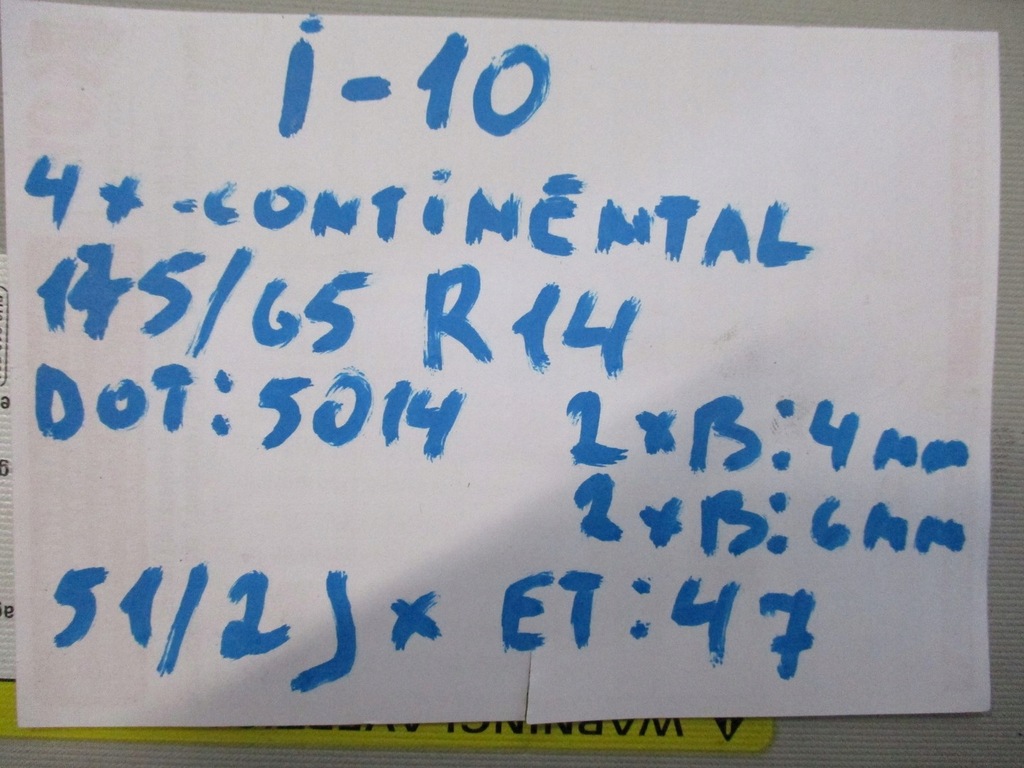 i-10
4x-CONTiNENTAL
175/65 R14
DOT:5014
2xB:4mm
2xB:6mm
51/2J x ET:47
WARNING!